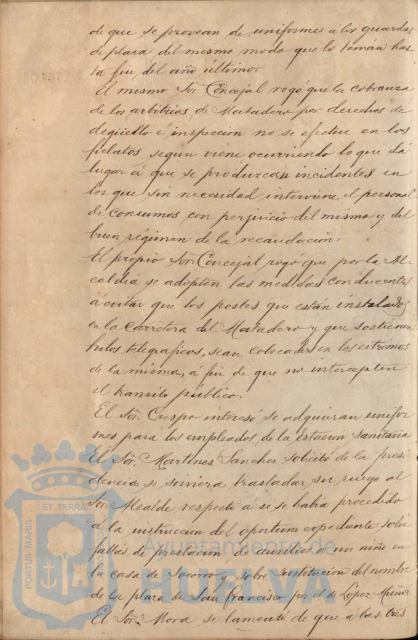 de que se provean de uniformes á los guardas
de plaza del mismo modo que lo tenian has
ta fin del año último.
El mismo Sor. Concejal rogó que la cobranza
de los arbitrios de Matadero por derechos de
degüello é inspeccion no se efectue en los
fielatos segun viene ocurriendo lo que dá
lugar á que se produzcan incidentes en
los que sin necesidad interviene el personal
de consumos con perjuicio del mismo y del
buen régimen de la recaudacion.
El propio Sor. Concejal rogó que por la Al
caldia se adopten las medidas conducentes
á evitar que los postes que están instalados
en la Carretera del Matadero y que sostienen
hilos telegraficos, sean colocados en los extremos
de la misma, á fin de que no intercepten
el transito público.
El Sor. Crespo interesó se adquieran unifor
mes para los empleados de la Estacion sanitaria
El Sor. Martinez Sanchez solicitó de la presi
dencia se sirviera trasladar su ruego al
Sor. Alcalde respecto á si se habia procedido
á la instruccion del oportuno expediente sobre
faltas de prestacion de auxilios á un niño en
la casa de Socorro y sobre sustitucion del nombre
de la plaza de San Francisco por el de Lopez Muñoz
El Sor. Mora se lamentó de que á las tres
PORTUS MARIS
ET TERRAE
Ayuntamiento de
HUELVA